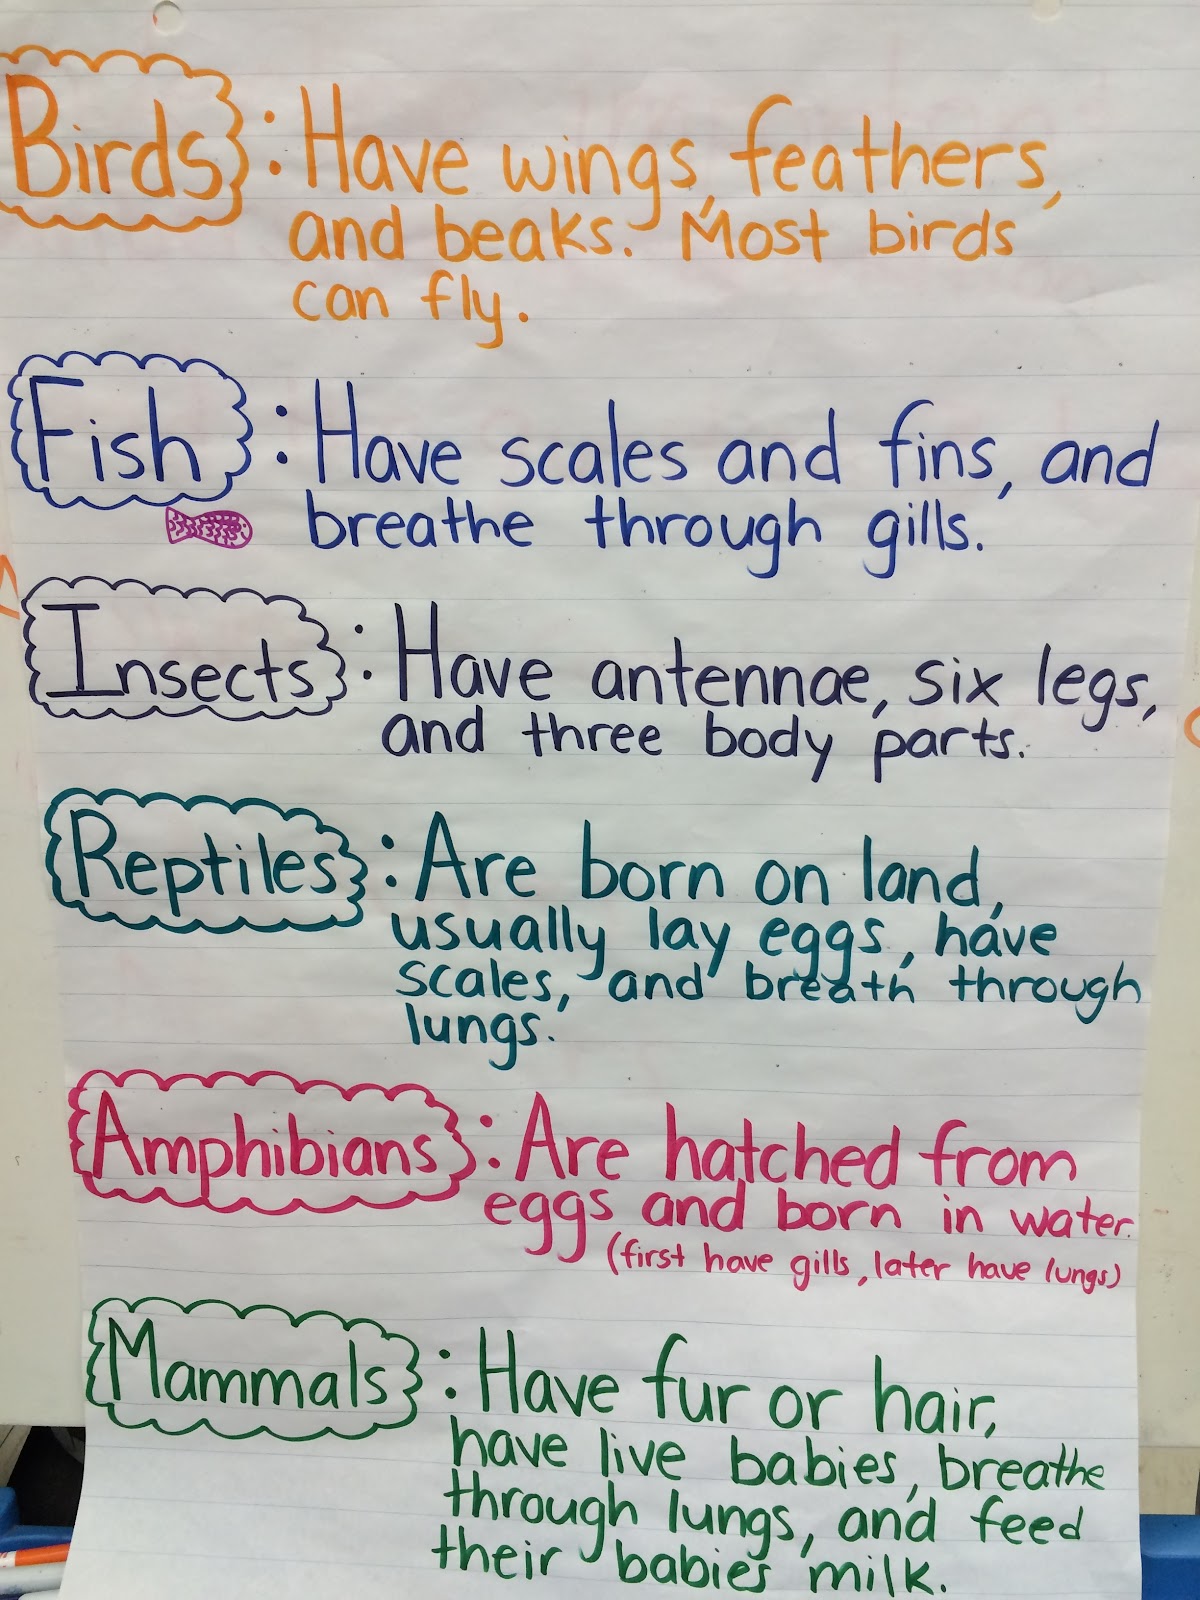 Birds: Have wings, feathers,
and beaks. Most birds
can fly.
Fish: Have scales and fins, and
breathe through gills.
Insects: Have antennae, six legs,
and three body parts.
Reptiles: Are born on land,
usually lay eggs, have
scales, and breath through
lungs.
Amphibians: Are hatched from
eggs and born in water.
(first have gills, later have lungs)
Mammals: Have fur or hair,
have live babies, breathe
through lungs, and feed
their babies milk.